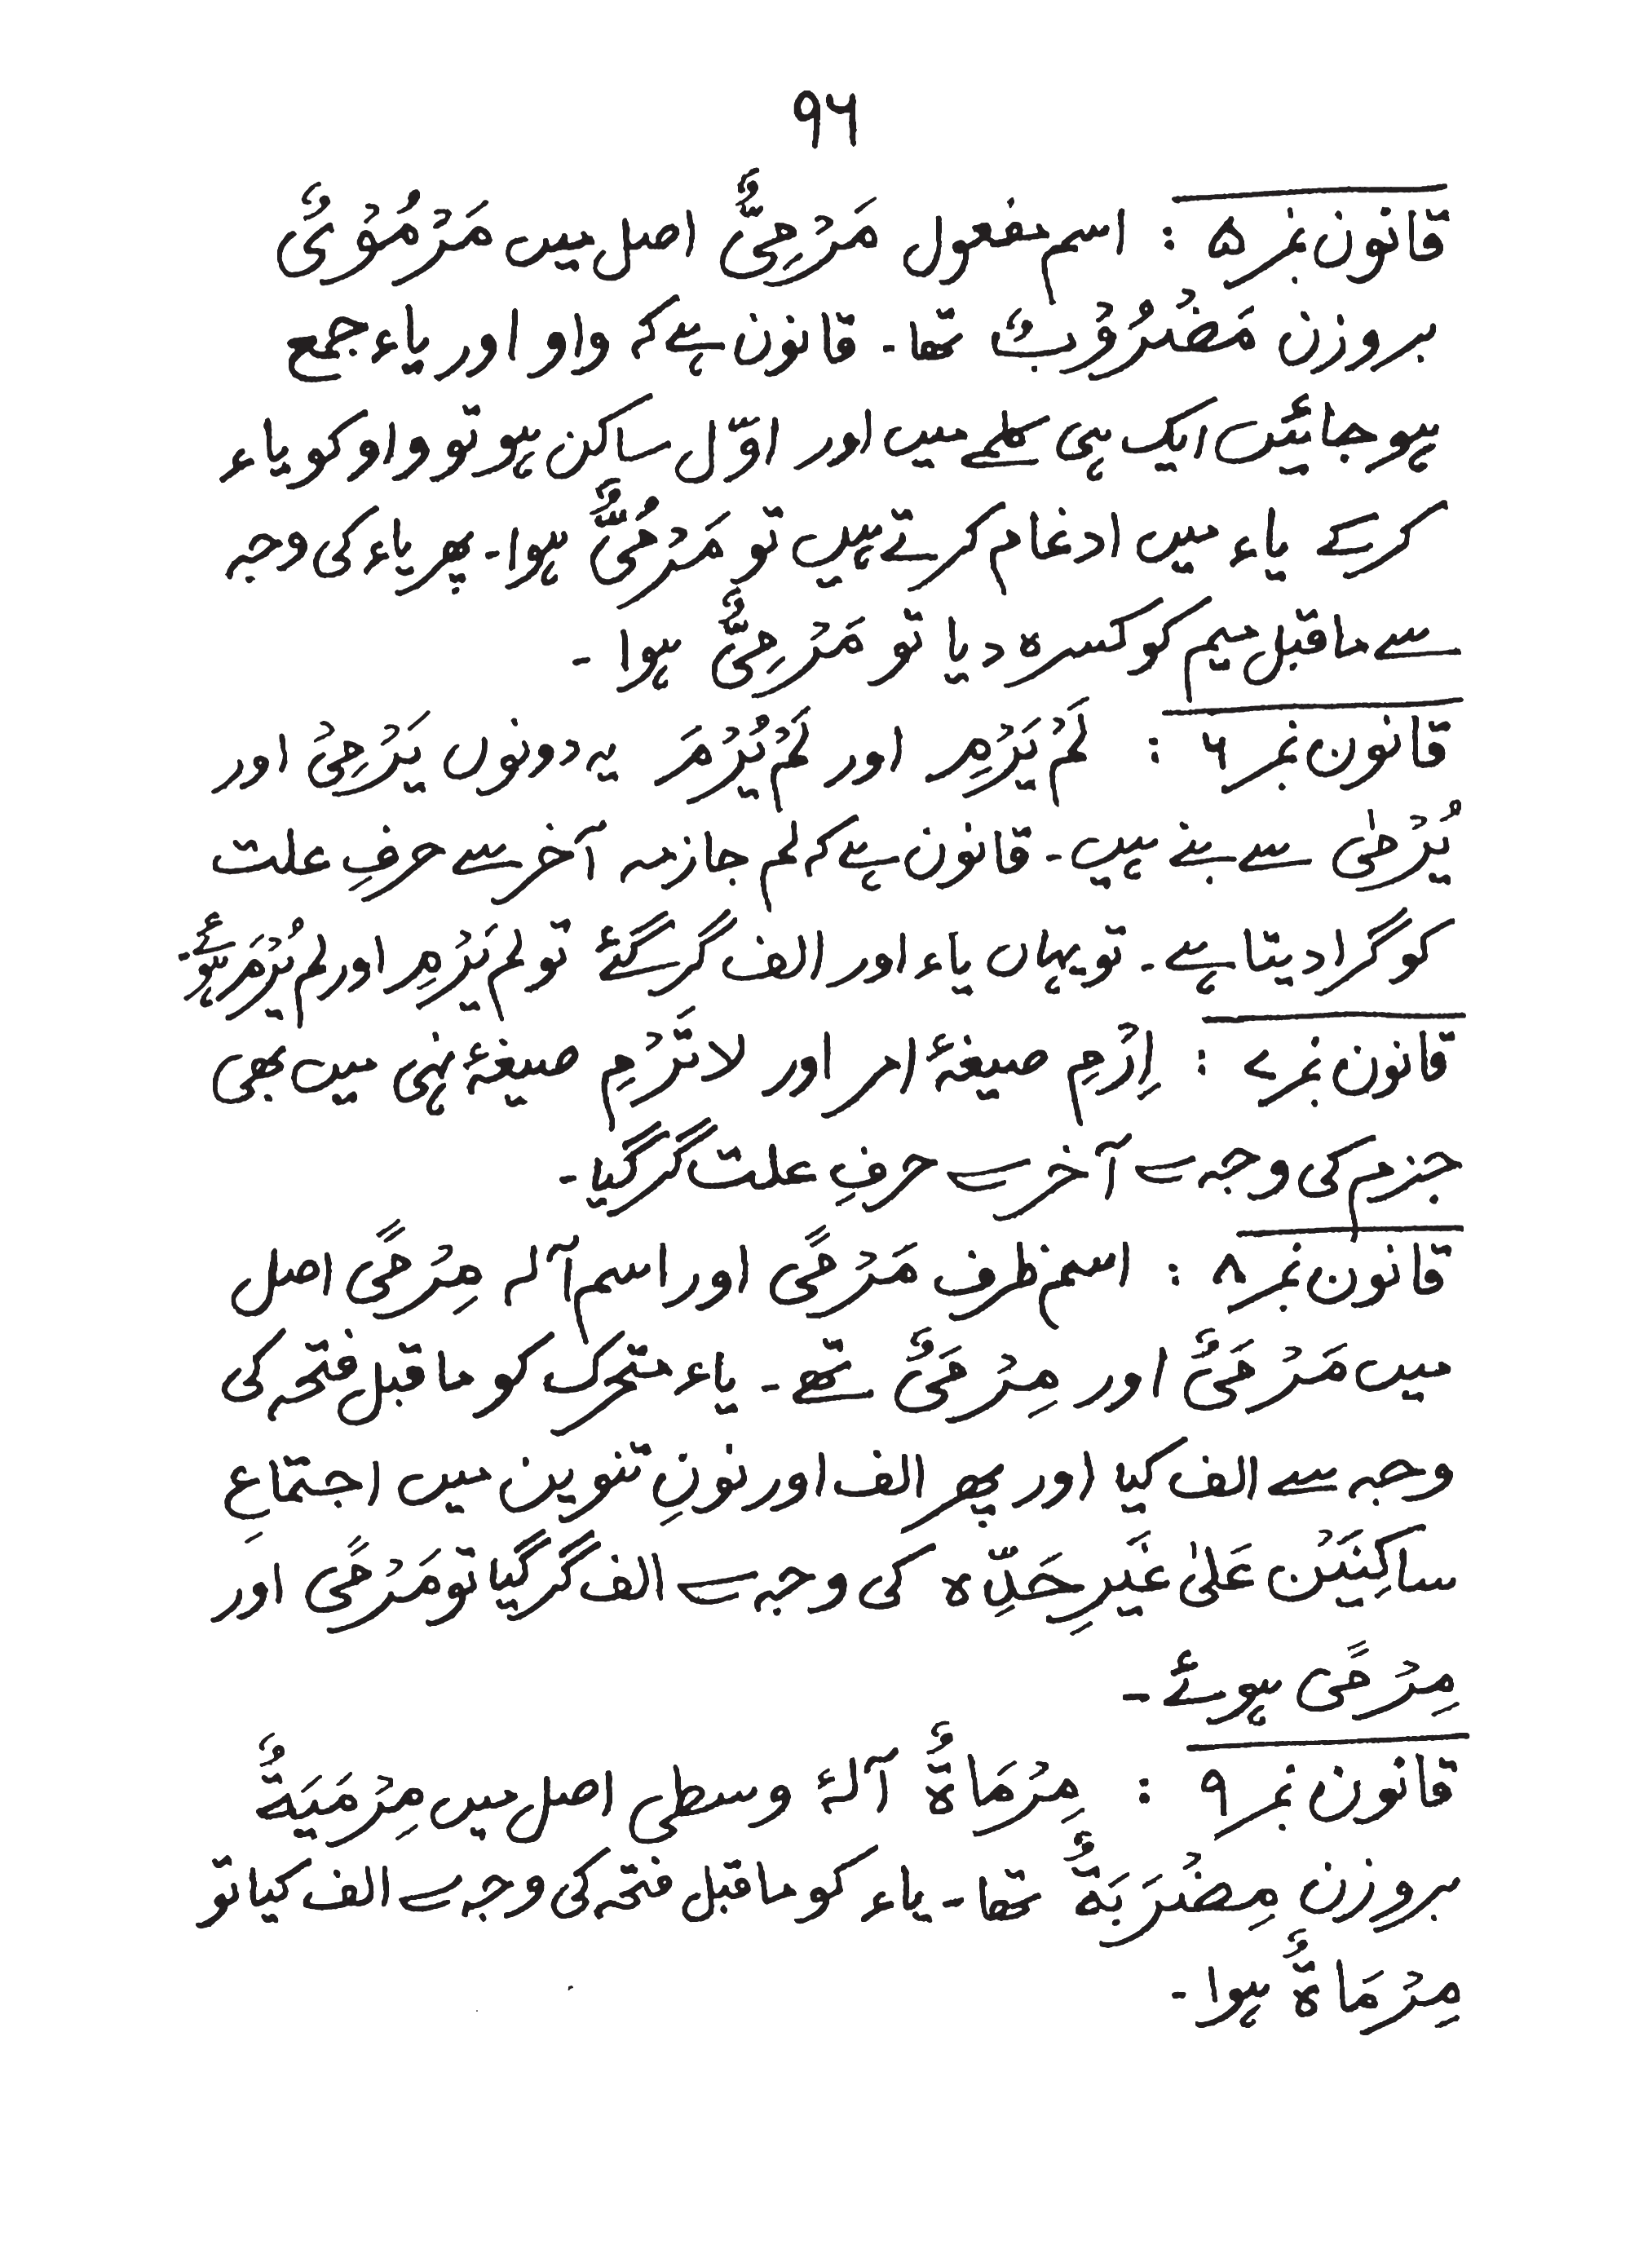 ۹۶
قانون نمبر ۵ : اسم مفعول مَرْمِیٌّ اصل میں مَرْمُوْیٌ
بروزن مَضْرُوْبٌ تھا۔ قانون ہے کہ واو اور یاء جمع
ہو جائیں ایک ہی کلمے میں اور اوّل ساکن ہو تو واو کو یاء
کرکے یاء میں ادغام کرتے ہیں تو مَرْمُیٌّ ہوا۔ پھر یاء کی وجہ
سے ماقبل میم کو کسرہ دیا تو مَرْمِیٌّ ہوا ۔
قانون نمبر ۶ : لَمْ یَرْمِ اور لَمْ یُرْمَ یہ دونوں یَرْمِیْ اور
یُرْمٰی سے بنے ہیں۔ قانون ہے کہ لم جازمہ آخر سے حرفِ علت
کو گرا دیتا ہے۔ تو یہاں یاء اور الف گر گئے تو لم یَرْمِ اور لم یُرْمَ ہوئے۔
قانون نمبر ۷ : اِرْمِ صیغۂ امر اور لا تَرْمِ صیغۂ نہی میں بھی
جزم کی وجہ سے آخر سے حرفِ علت گر گیا۔
قانون نمبر ۸ : اسم ظرف مَرْمًی اور اسم آلہ مِرْمًی اصل
میں مَرْمَیٌ اور مِرْمَیٌ تھے ۔ یاء متحرک کو ماقبل فتحہ کی
وجہ سے الف کیا اور پھر الف اور نونِ تنوین میں اجتماعِ
ساکِنَیْن عَلیٰ غَیرِ حَدِّہ کی وجہ سے الف گر گیا تو مَرْمًی اور
مِرْمًی ہوئے ۔
قانون نمبر ۹ : مِرْمَاةٌ آلۂ وسطی اصل میں مِرْمَیَةٌ
بروزن مِضْرَبَةٌ تھا۔ یاء کو ماقبل فتحہ کی وجہ سے الف کیا تو
مِرْمَاةٌ ہوا۔